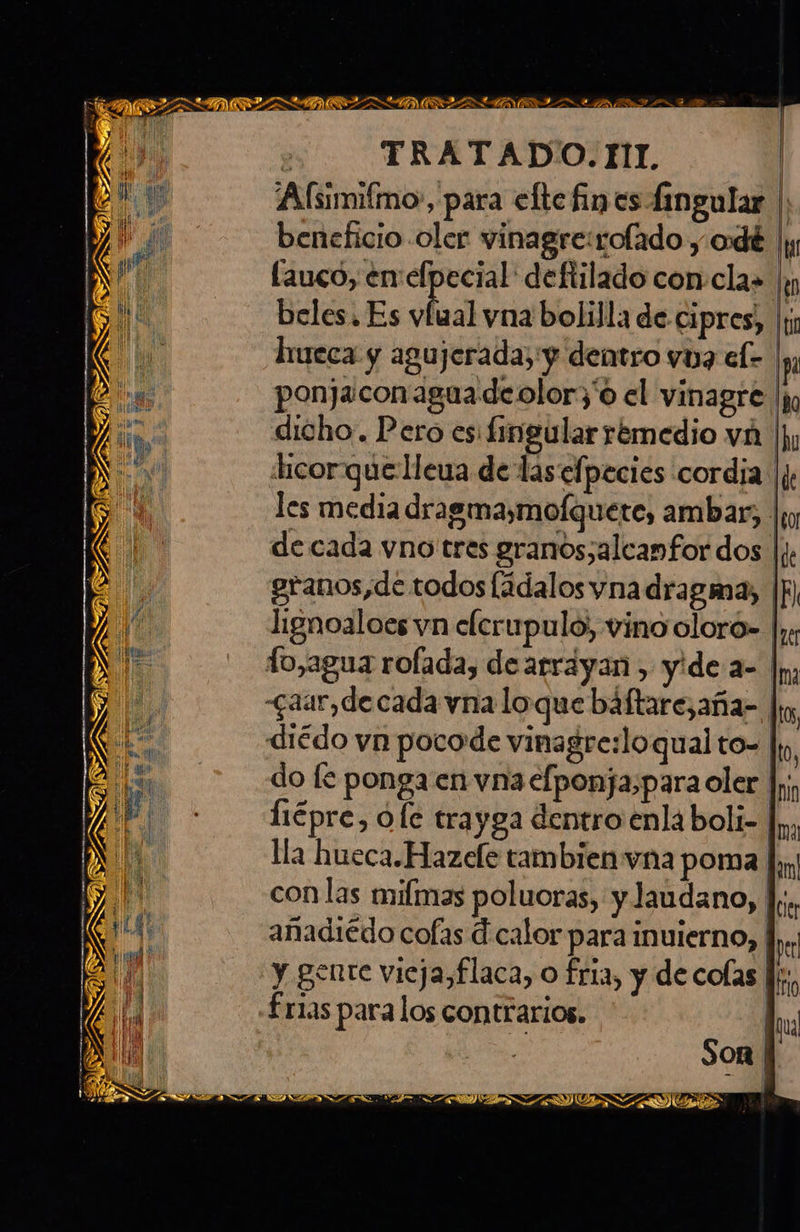 TRATADO. III.
Aſsimiſmo, para eſte fin es ſingular
beneficio oler vinagre roſado, o dē
ſauco, en eſpecial deſtilado con cla-
beles. Es vſual vna bolilla de cipres,
hueca y agujerada, y dentro vna eſ-
ponja con agua de olor, o el vinagre
dicho. Pero es ſingular remedio vn
licor que lleua de las eſpecies cordia
les media dragma, moſquete, ambar,
de cada vno tres granos, alcanfor dos
granos, de todos ſādalos vna dragma,
lignoaloes vn eſcrupulo, vino oloro-
ſo, agua roſada, de arrayan, y de a-
çaar, de cada vna lo que baſtare, aña-
diēdo vn poco de vinagre: lo qual to-
do ſe ponga en vna eſponja, para oler
ſiēpre, o ſe trayga dentro en la boli-
lla hueca. Hazeſe tambien vna poma
con las miſmas poluoras, y laudano,
añadiēdo coſas d̄ calor para inuierno,
y gente vieja, flaca, o fria, y de coſas
frias para los contrarios.
Son